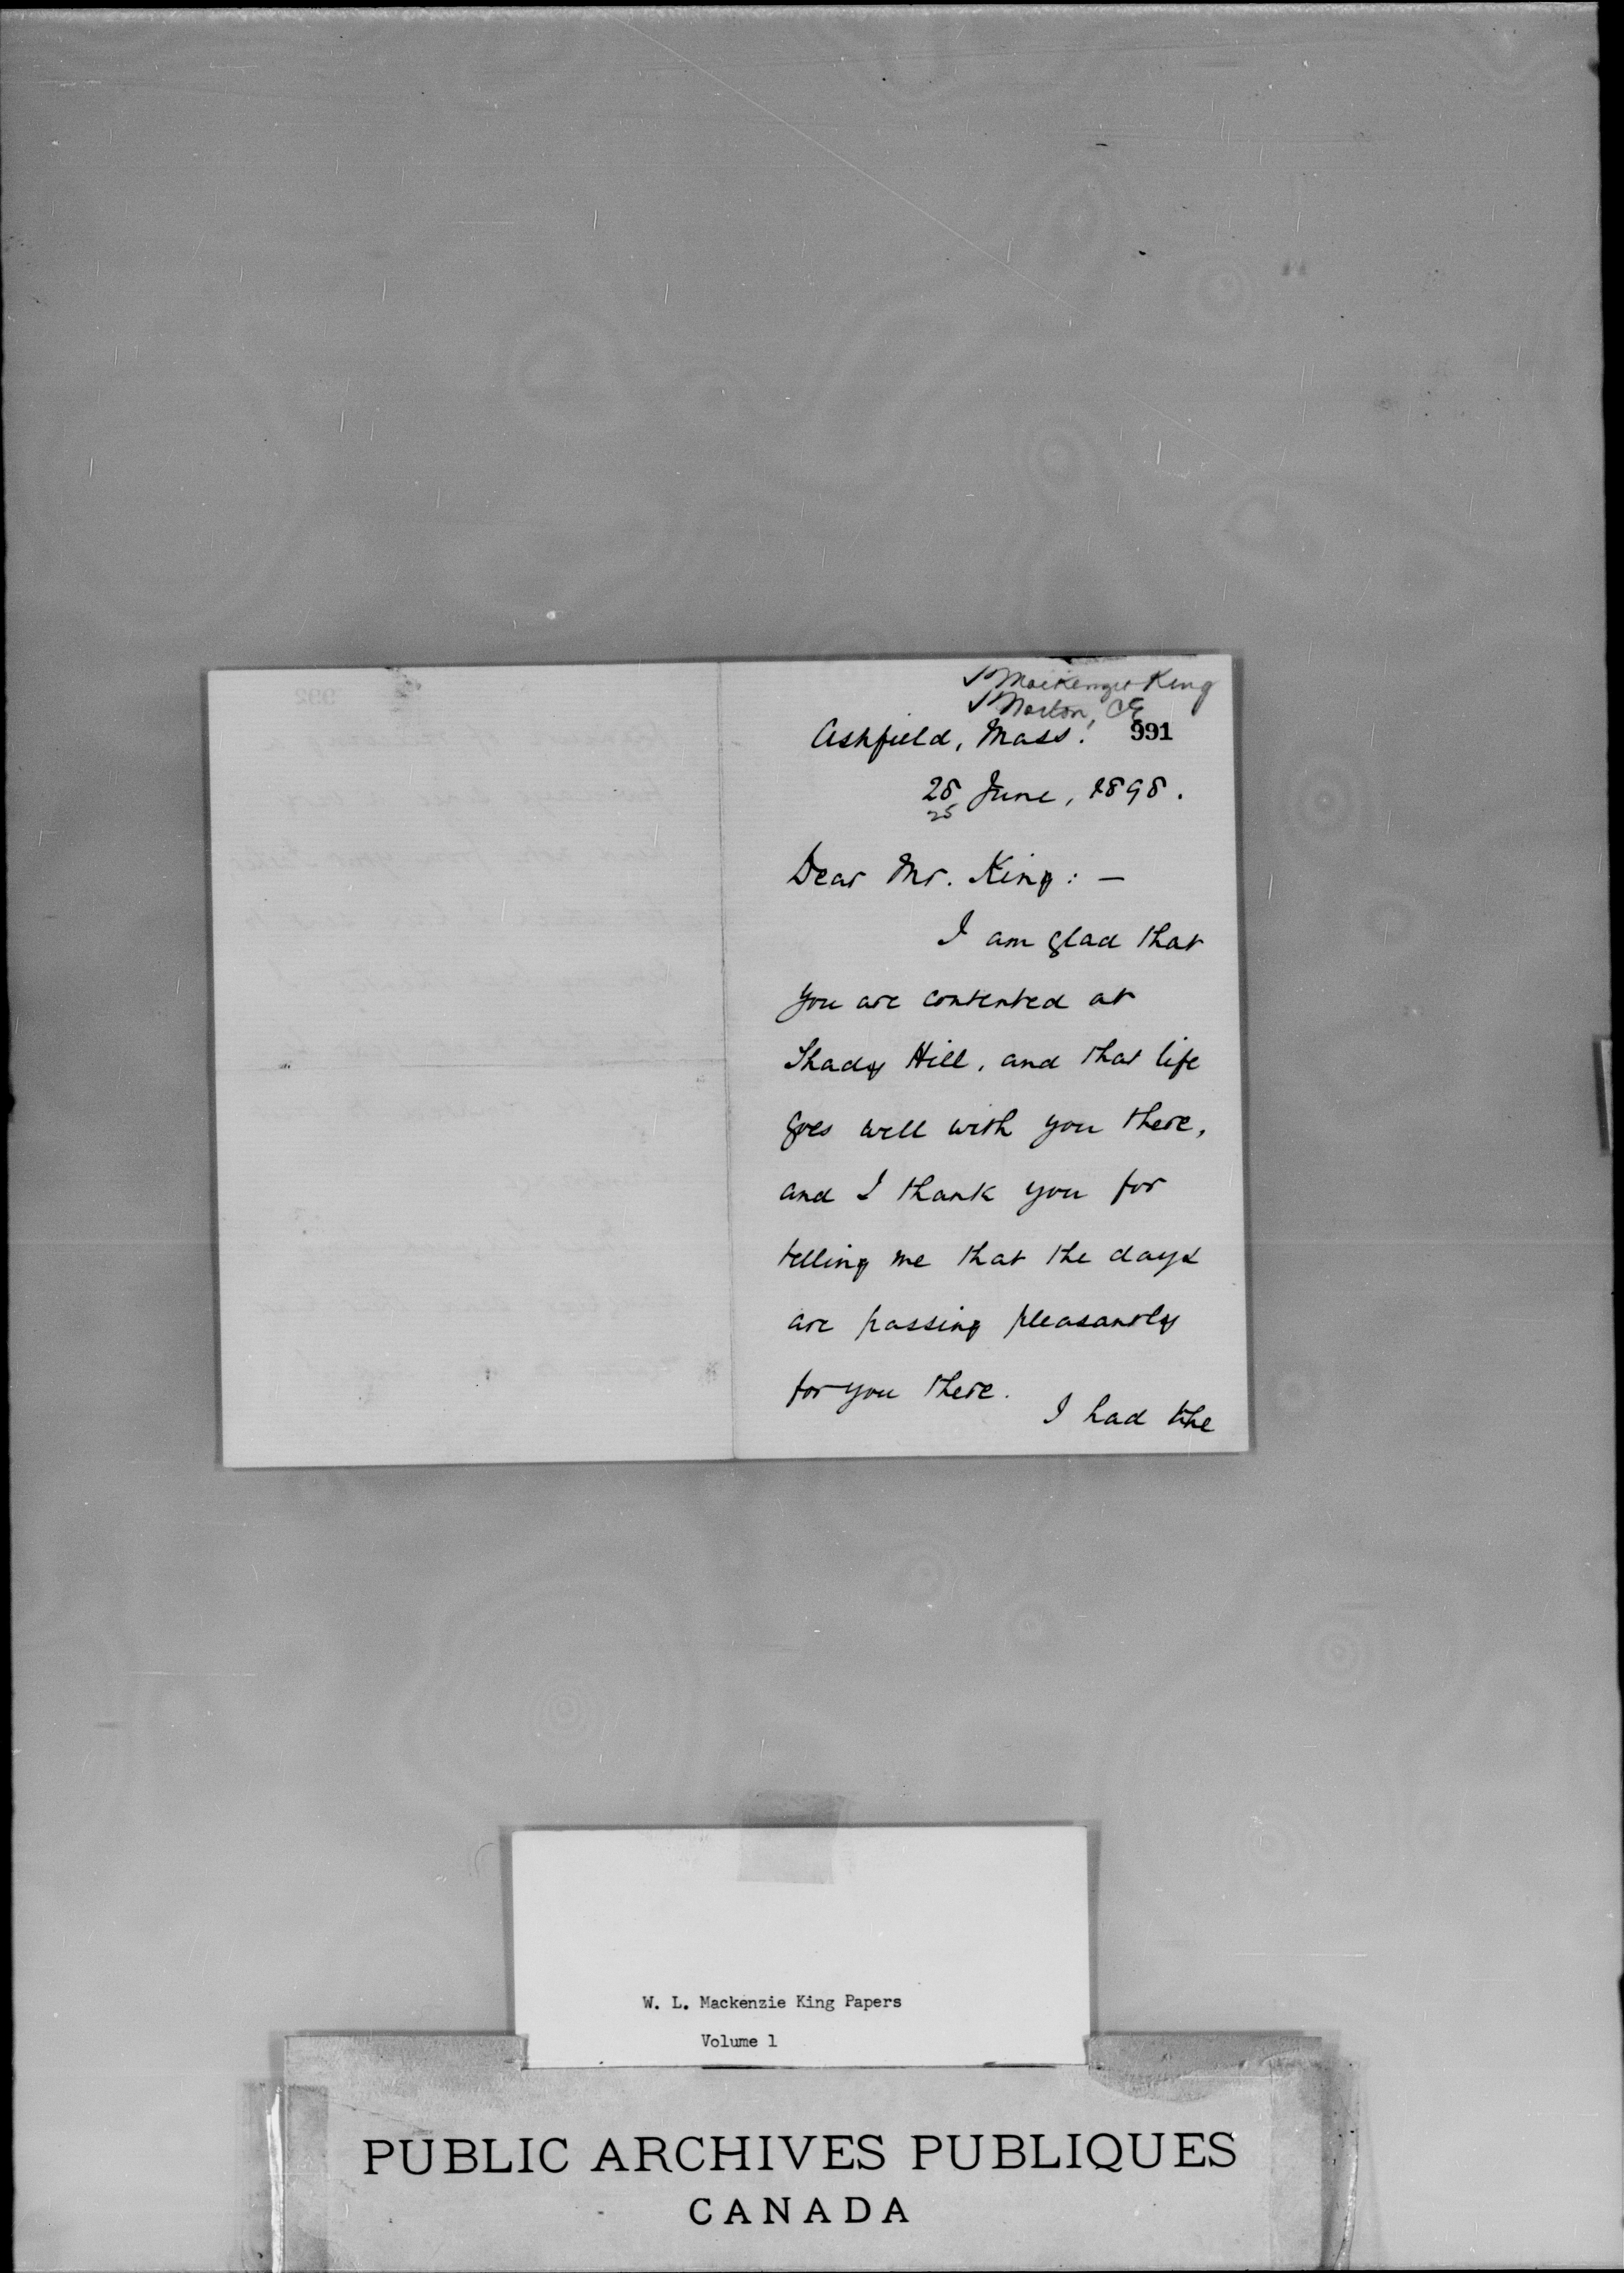 ✓ Mackenzie King
✓ Norton, C E
Ashfield, Mass. 991
28 June, 1898.
25
Dear Mr. King: —
I am glad that
you are contented at
Shady Hill, and that life
goes well with you there,
and I thank you for
telling me that the days
are passing pleasantly
for you there.
I had the
W. L. Mackenzie King Papers
Volume 1
PUBLIC ARCHIVES PUBLIQUES
CANADA